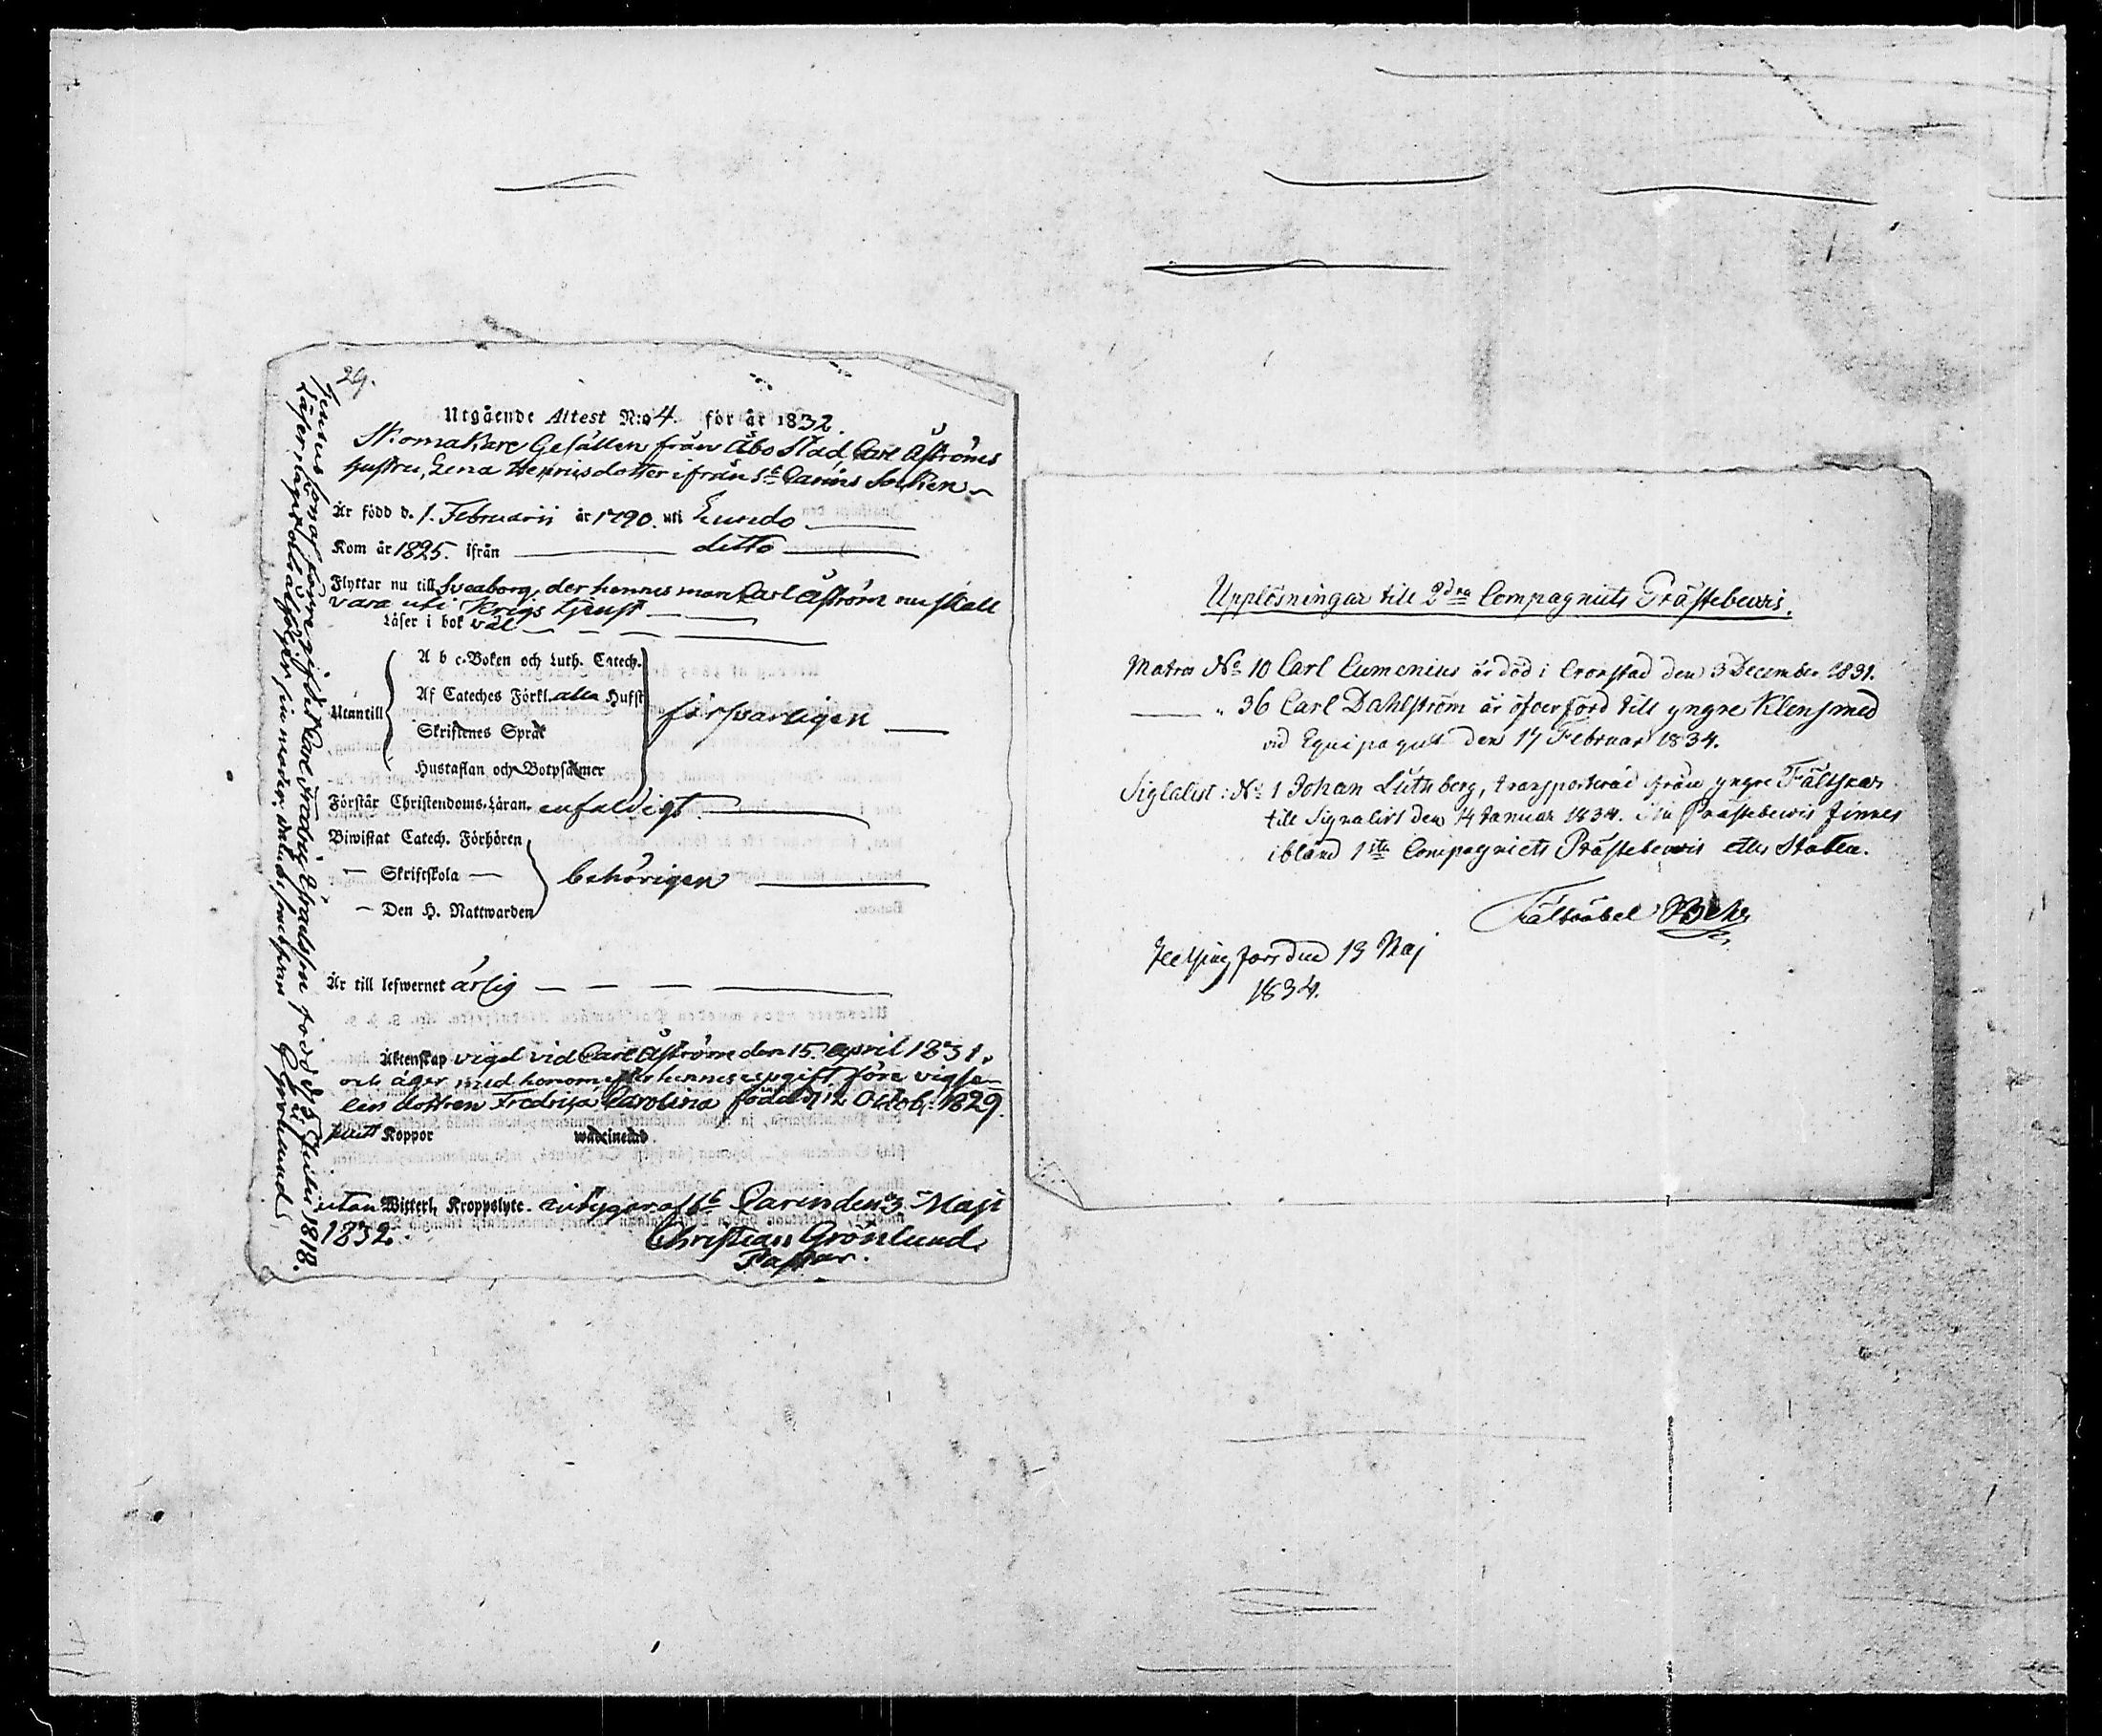 29.
Utgående Attest N:o 4. för år 1832.
Skomakare Gesällen från Åbo Stad, Carl Åströms
hustru, Lena Henricsdotter ifrån St Carins Socken
Är född d. 1. Februarii år 1790. uti Lundo
Kom år 1825. ifrån ditto
Flyttar nu till Sveaborg, der hennes man Carl Åström nu skall
vara uti Krigs tjenst
Läser i bok väl
Utantill
A b c-Boken och Luth. Catech.
Af Cateches Förkl. alla Hufst
Skriftenes Språk
Hustaflan och Botpsalmer
försvarligen
Förstår Christendoms-Läran. enfaldigt
Biwistat Catech. Förhören
— Skriftskola —
— Den H. Nattwarden
behörigen
Är till lefwernet ärlig
Äktenskap vigd vid Carl Åström den 15. April 1831.
och äger med honom efter hennes uppgift före vigse-
len dottren Fredrika Carolina född d. 12 Octob. 1829.
haft Koppor
utan Witterl. Kroppslyte. intygar af St Carin den 3. Maji
1832.
Christian Grönlund.
Pastor.
Hennes son af förre giftet Carl Fredric född d. 5 1818.
Läser följer sin moder Grönlund
Upplösningar till 2dra Compagniets Prästebevis.
Matros No 10 Carl Cumenius är död i Cronstad den 3 December 1831.
" 36 Carl Dahlström är öfverförd till yngre Klensmed
vid Equipaget den 17 Februar 1834.
Siglalist: No 1 Johan Lüthberg, transporterad från yngre Fältskär
till Signalist den 14 Januar 1834. Prästebevis finnes
ibland 1sta Compagniets Prästebevis eller Staben.
Fältväbel
Helsingfors den 13 Maj
1834.